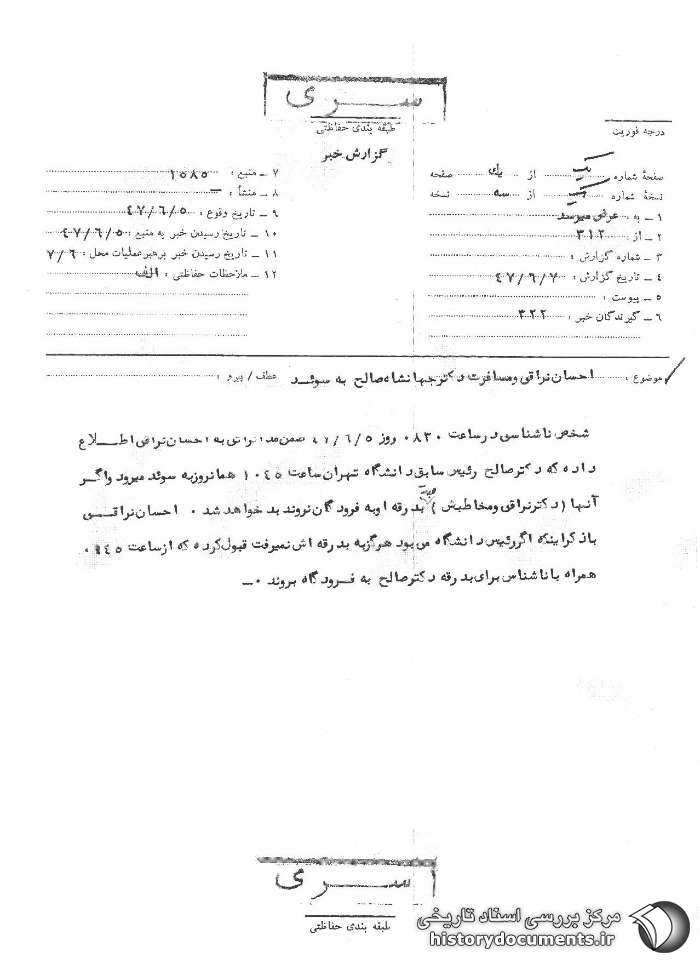 سری
طبقه بندی حفاظتی
درجه فوریت
گزارش خبر
صفحهٔ شماره یک از یک صفحه
نسخهٔ شماره یک از سه نسخه
۱ ـ به : عرض میرسد
۲ ـ از : ۳۱۲
۳ ـ شماره گزارش :
۴ ـ تاریخ گزارش : ۴۷/۶/۷
۵ ـ پیوست :
۶ ـ گیرندگان خبر : ۳۲۲
۷ ـ منبع : ۱۰۸۵
۸ ـ منشأ : ـ
۹ ـ تاریخ وقوع : ۴۷/۶/۵
۱۰ ـ تاریخ رسیدن خبر به منبع : ۴۷/۶/۵
۱۱ ـ تاریخ رسیدن خبر برهبر عملیات محل : ۷/۶
۱۲ ـ ملاحظات حفاظتی : الف
موضوع : احسان نراقی ومسافرت دکترجهانشاه صالح به سوئد
عطف / پیرو :
شخص ناشناسی درساعت ۰۸۳۰ روز ۴۷/۶/۵ ضمن مذاکراتی به احسان نراقی اطلاع
داده که دکترصالح رئیس سابق دانشگاه تهران ساعت ۱۰۴۵ همانروزبه سوئد میرود واگر
آنها (دکترنراقی ومخاطبش) بدرقه اوبه فرودگان نروند بد خواهد شد ۰ احسان نراقی
باذکراینکه اگررئیس دانشگاه می بود هرگزبه بدرقه اش نمیرفت قبول کرده که ازساعت ۰۹۴۵
همراه باناشناس برای بدرقه دکترصالح به فرودگاه بروند ۰ـ
سری
طبقه بندی حفاظتی
مرکز بررسی اسناد تاریخی
historydocuments.ir